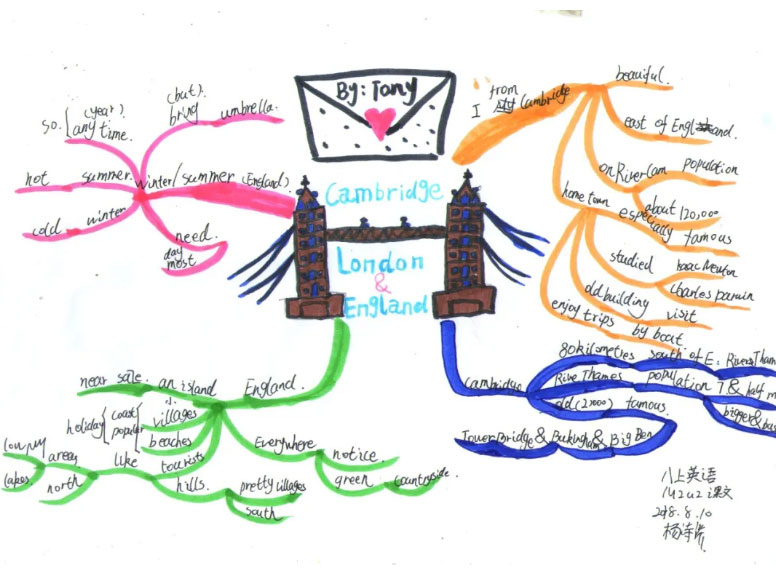 By: Tony
Cambridge
London
&
England
I from Cambridge
beautiful.
east of England.
on River Cam
population
about 120,000
home town
especially famous
studied
Isaac Newton
Charles Darwin
old building visit
enjoy trips by boat
(but).
bring umbrella.
so. (year).
any time.
Winter/summer (England)
hot summer.
cold winter
need.
day
most.
England.
an island
near sale
villages
holiday
coast
popular
beaches
tourists
like
area
north
lakes.
hills.
pretty villages
south
Everywhere
notice
green
countryside.
Cambridge
80 kilometres south of E.
River Tham
River Thames
population 7 & half m
bigger & bus
old (2,000) famous.
Tower Bridge & Bukingham & Big Ben
八上英语
M2U2 课文
2018.8.10